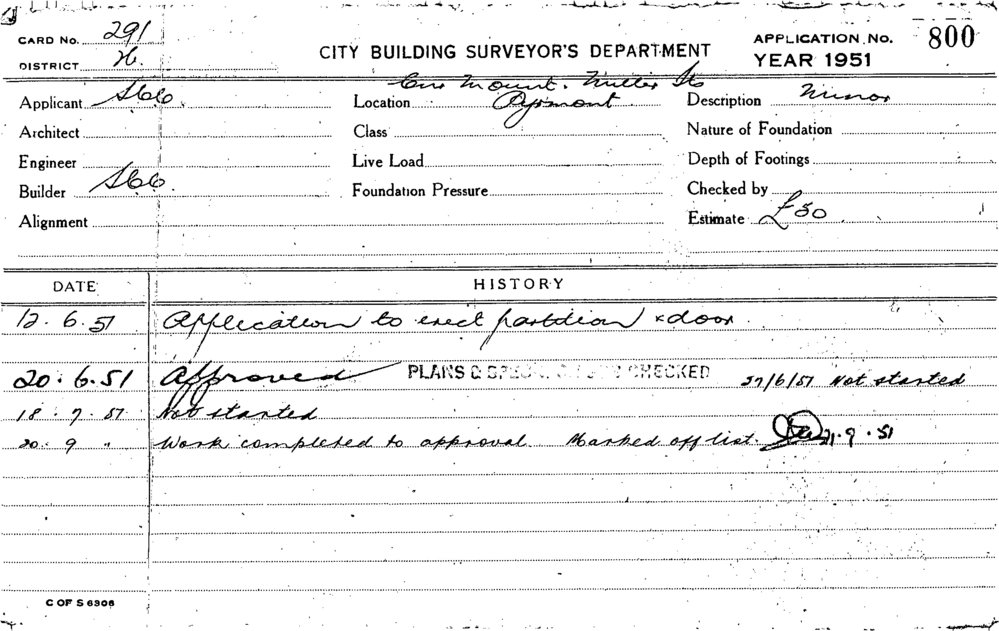 CARD No. 291
DISTRICT H.
CITY BUILDING SURVEYOR'S DEPARTMENT
APPLICATION No. 800
YEAR 1951
Applicant SCC.
Location Cnr Mount. Miller Sts
Pyrmont
Description Minor
Architect
Class
Nature of Foundation
Engineer
Live Load
Depth of Footings
Builder SCC.
Foundation Pressure
Checked by
Alignment
Estimate £50
DATE HISTORY
12.6.51 Application to erect partition & door.
20.6.51 Approved PLANS & CHECKED 27/6/51 Not started
18.7.51 Not started
20.9 " Work completed to approval. Marked off list. 21.9.51
C OF S 6906